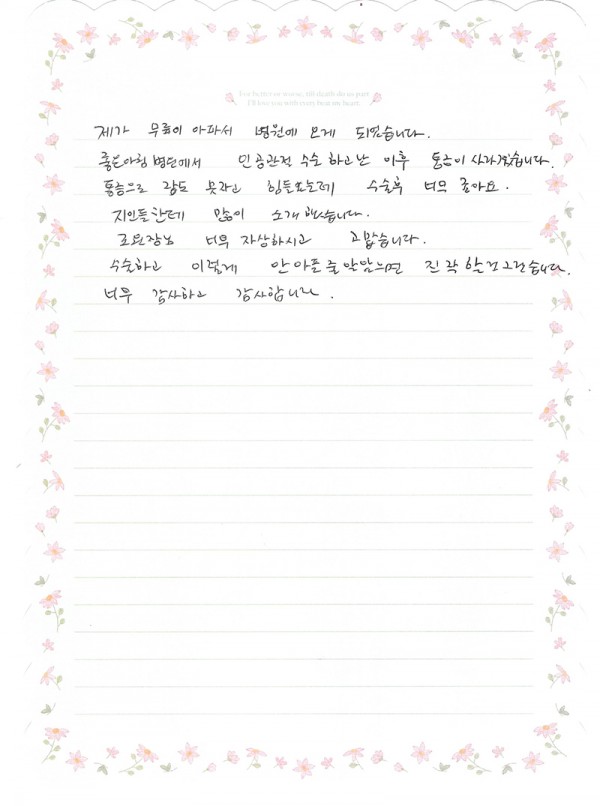 For better or worse, till death do us part
I'll love you with every beat my heart.
제가 무릎이 아파서 병원에 오게 되었습니다.
좋은아침병원에서 인공관절 수술 하고난 이후 통증이 사라졌습니다.
통증으로 잠도 못자고 힘들었는데 수술후 너무 좋아요.
지인들한테 많이 소개 했습니다.
조원장님 너무 자상하시고 고맙습니다.
수술하고 이렇게 안 아픈줄 알았으면 진작 할껄 그랬습니다.
너무 감사하고 감사합니다.